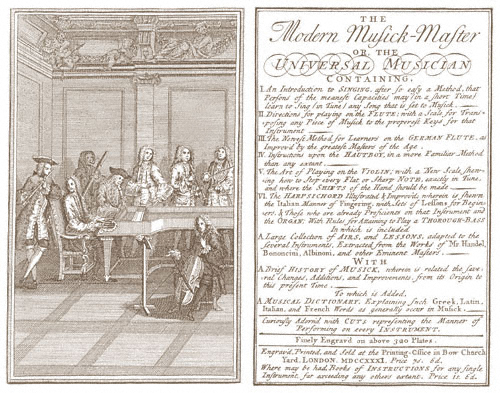 THE
Modern Musick-Master
OR, THE
UNIVERSAL MUSICIAN
CONTAINING,
I. An Introduction to SINGING, after so easy a Method, that
Persons of the meanest Capacities may (in a short Time)
learn to Sing (in Tune) any Song that is set to Musick.
II. Directions for playing on the FLUTE; with a Scale for Trans-
posing any Piece of Musick to the properest Keys for that
Instrument
III. The Newest Method for Learners on the GERMAN FLUTE, as
Improv'd by the greatest Masters of the Age.
IV. Instructions upon the HAUTBOY, in a more Familiar Method
than any extant.
V. The Art of Playing on the VIOLIN; with a New Scale, shew-
ing how to Stop every Flat or Sharp NOTE, exactly in Tune,
and where the SHIFTS of the Hand should be made
VI. The HARPSICHORD Illustrated & Improv'd, wherein is shewn
the Italian Manner of Fingering, with Sets of Lessons for Begin-
ers, & Those who are already Proficients on that Instrument and
the ORGAN; With Rules for Attaining to Play a THOROUGH-BASS
In which is included
A Large Collection of AIRS, and LESSONS, adapted to the
several Instruments, Extracted from the Works of Mr. Handel,
Bononcini, Albinoni, and other Eminent Masters
WITH
A Brief HISTORY of MUSICK, wherein is related the Seve-
ral Changes, Additions, and Improvements, from its Origin to
this present Time.
To which is Added,
A MUSICAL DICTIONARY, Explaining such Greek, Latin,
Italian, and French Words as generally occur in Musick.
Curiously Adorn'd with CUTS representing the Manner of
Performing on every INSTRUMENT.
Finely Engrav'd on above 320 Plates.
Engrav'd, Printed, and Sold at the Printing-Office in Bow Church
Yard, LONDON. MDCCXXXI. Price 7s. 6d.
Where may be had, Books of INSTRUCTIONS for any single
Instrument, far exceeding any others extant. Price 1s. 6d.